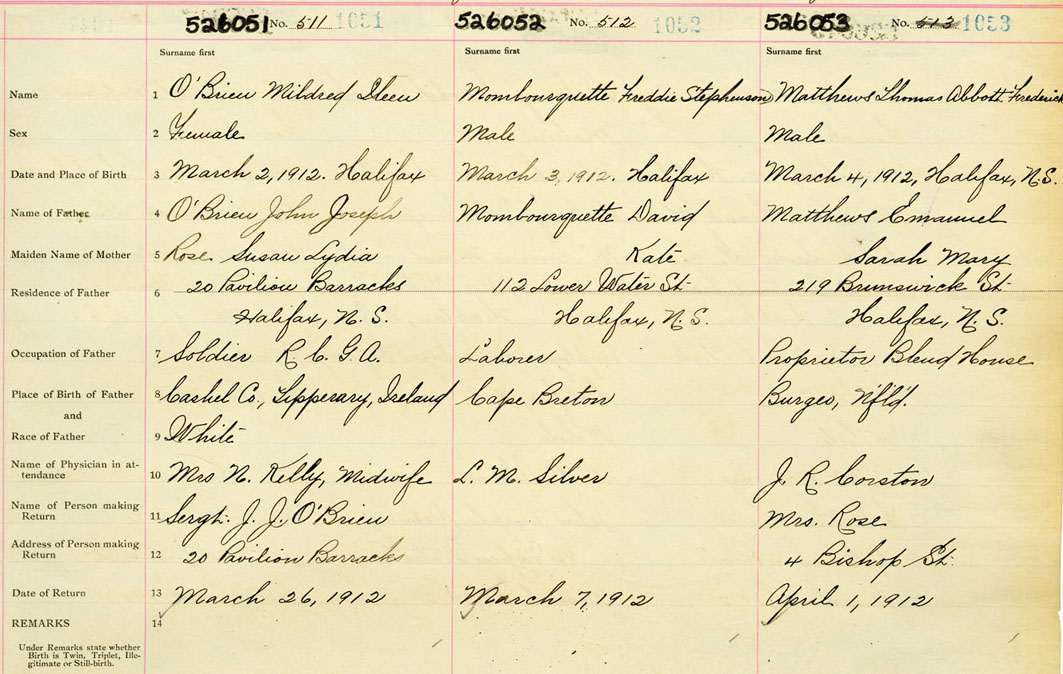 526051 No. 511 1051 526052 No. 512 1052 526053 No. 513 1053
Surname first Surname first Surname first
Name 1 O'Brien Mildred Ileen Mombourquette Freddie Stephenson Matthews Thomas Abbott Frederick
Sex 2 Female Male Male
Date and Place of Birth 3 March 2, 1912. Halifax March 3, 1912. Halifax March 4, 1912, Halifax, N.S.
Name of Father 4 O'Brien John Joseph Mombourquette David Matthews Emanuel
Maiden Name of Mother 5 Rose Susan Lydia Kate Sarah Mary
Residence of Father 6 20 Pavilion Barracks 112 Lower Water St. 219 Brunswick St.
Halifax, N.S. Halifax, N.S. Halifax, N.S.
Occupation of Father 7 Soldier R.C.G.A. Laborer Proprietor House
Place of Birth of Father 8 Cashel Co., Tipperary, Ireland Cape Breton Burgeo, Nfld.
and
Race of Father 9 White
Name of Physician in at-
tendance 10 Mrs N. Kelly, Midwife L. M. Silver J. R. Corston
Name of Person making
Return 11 Sergt. J. J. O'Brien Mrs. Rose
Address of Person making
Return 12 20 Pavilion Barracks 4 Bishop St.
Date of Return 13 March 26, 1912 March 7, 1912 April 1, 1912
REMARKS 14
Under Remarks state whether
Birth is Twin, Triplet, Ille-
gitimate or Still-birth.